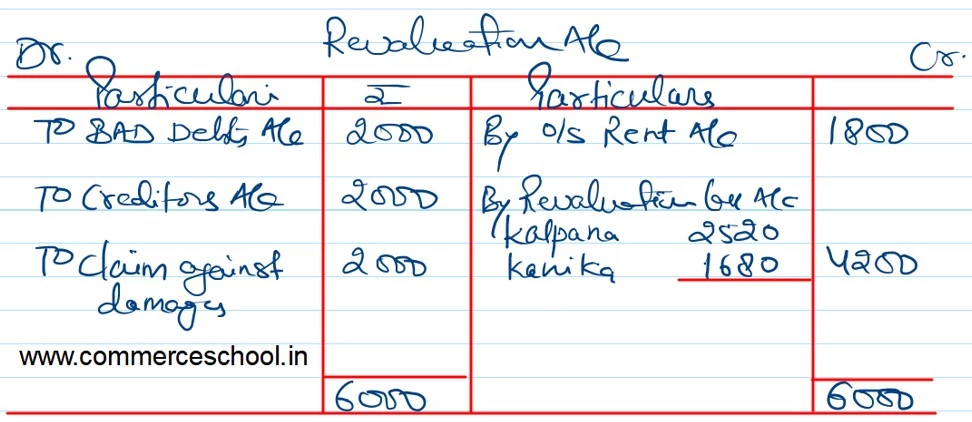 Revaluation A/c
Dr. Cr.
Particulars ₹ Particulars
To BAD Debts A/c 2000 By O/s Rent A/c 1800
To Creditors A/c 2000 By Revaluation A/c
Kalpana 2520
To Claim against 2000 Kanika 1680 4200
damages
www.commerceschool.in
6000 6000